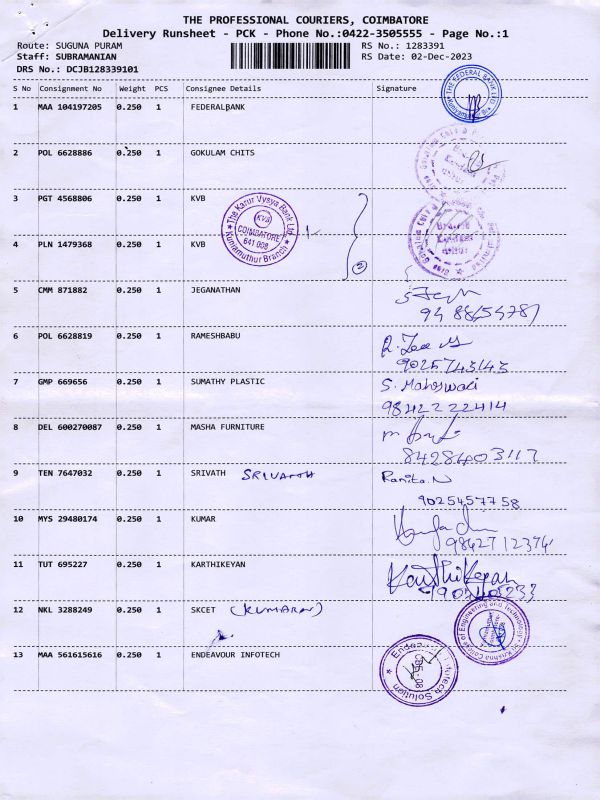 THE PROFESSIONAL COURIERS, COIMBATORE
Delivery Runsheet - PCK - Phone No.:0422-3505555 - Page No.:1
Route: SUGUNA PURAM RS No.: 1283391
Staff: SUBRAMANIAN RS Date: 02-Dec-2023
DRS No.: DCJB128339101
S No Consignment No Weight PCS Consignee Details Signature
THE FEDERAL BANK LTD
1 MAA 104197205 0.250 1 FEDERALBANK
2 POL 6628886 0.250 1 GOKULAM CHITS
3 PGT 4568806 0.250 1 KVB
The Karur Vysya Bank Ltd
KVB
COIMBATORE
641 008
Kuniamuthur Branch
4 PLN 1479368 0.250 1 KVB
2
5 CMM 871882 0.250 1 JEGANATHAN
6 POL 6628819 0.250 1 RAMESHBABU
9025743143
7 GMP 669656 0.250 1 SUMATHY PLASTIC S. Maheswari
9842222414
8 DEL 600270087 0.250 1 MASHA FURNITURE
8428403117
9 TEN 7647032 0.250 1 SRIVATH SRIVATH Ranita.N
9025457758
10 MYS 29480174 0.250 1 KUMAR
9842712374
11 TUT 695227 0.250 1 KARTHIKEYAN Karthikeyan
12 NKL 3288249 0.250 1 SKCET (KUMARAN)
College of Engineering and Technology
13 MAA 561615616 0.250 1 ENDEAVOUR INFOTECH
CBE-08